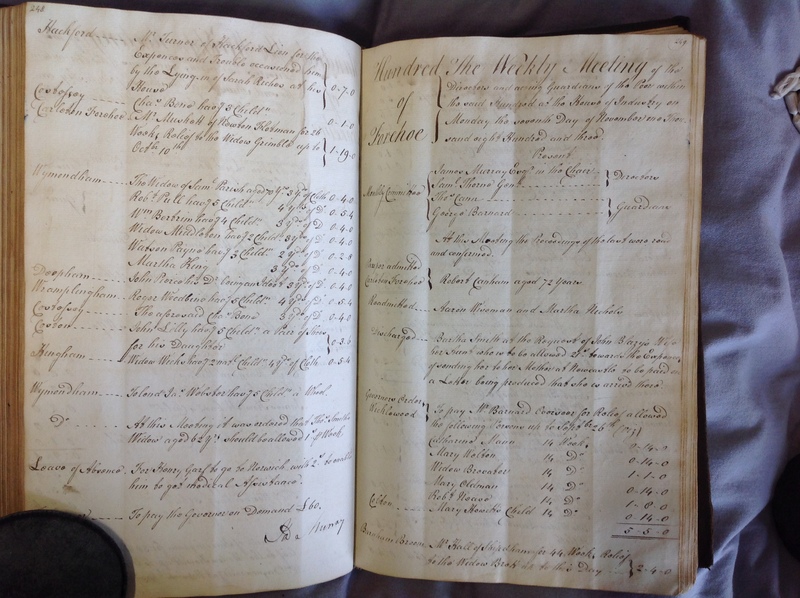 248
Hackford
Mr. Turner of Hackford Leon for the
Expences and Trouble occasioned him
by the Lying in of Sarah Riches at his
House
0-7-0
Costessy
Chas. Bond hag 3 Childn.
0-1-0
Carleton Forehoe
Mr. Muskett of Newton Flotman for 26
Weeks Relief to the Widow Grimble up to
Octr. 10th
1-19-0
Wymondham
The Widow of Saml. Parish aged 3 yds. of Cloth 0-4-0
Robt. Pull hag 5 Childn. 4 yds. of Do. 0-5-4
Wm. Bertrim hag 4 Childn. 3 yds. of Do. 0-4-0
Widow Middleton hag 2 Childn. 3 yds. of Do. 0-4-0
Watson Payne hag 3 Childn. 2 yds. of Do. 0-2-8
Martha King 3 yds. of Do. 0-4-0
Deopham
John Pierce 3 yds. of Do. 0-4-0
Wramplingham
Roger Weedling hag 5 Childn. 4 yds. of Do. 0-5-4
Costessy
The aforesaid Chas. Bond 3 yds. of Do. 0-4-0
Coston
John Lilly hag 5 Childn. a Pair of Shoes
for his Daughter
0-3-6
Hingham
Widow Weeks hag 2 Childn. 4 yds. of Cloth 0-5-4
Wymondham
To lend Jas. Webster hag 5 Childn. a Wheel
Do.
At this Meeting it was ordered that Thos. Smiths
Widow aged 62 yrs. should be allowed 1s. p Week
Leave of Absence
For Henry Garf to go to Norwich with 2s. to enable
him to get medical Assistance
To pay the Governor on Demand £60.
Jas. Murray
249
Hundred of Forehoe
The Weekly Meeting of the
Directors and acting Guardians of the Poor within
the said Hundred at the House of Industry on
Monday the seventh Day of November one Thou
sand eight Hundred and three
Present
Weekly Committee
James Murray Esqr. in the Chair
Saml. Thorne Gent.
Directors
Thos. Cann
George Barnard
Guardians
At this Meeting the Proceedings of the last were read
and confirmed
Pauper admitted
Carleton Forehoe
Robert Canham aged 72 Years
Readmitted
Aaron Wiseman and Martha Nichols
Discharged
Bartha Smith at the Request of John Barys
her Servt. who is to be allowed 2s. towards the Expence
of sending her to her Mother at Newcastle to be paid on
a Letter being produced that she is arrived there
Governors Orders
Wicklewood
To pay Mr. Barnard Overseer for Relief allowed
the following Persons up to Septr. 26th 1803
Catharine Mann 14 Weeks 0-14-0
Mary Wolton 14 Do. 0-14-0
Widow Brewster 14 Do. 1-1-0
Mary Oldman 14 Do. 0-14-0
Robt. Howes 14 Do. 1-8-0
Colton
Mary Howchs Child 14 Do. 0-14-0
5-5-0
Brandon Broom
Mr. Hall of Shipdham for 44 Weeks Relief
to the Widow to this Day
2-4-0